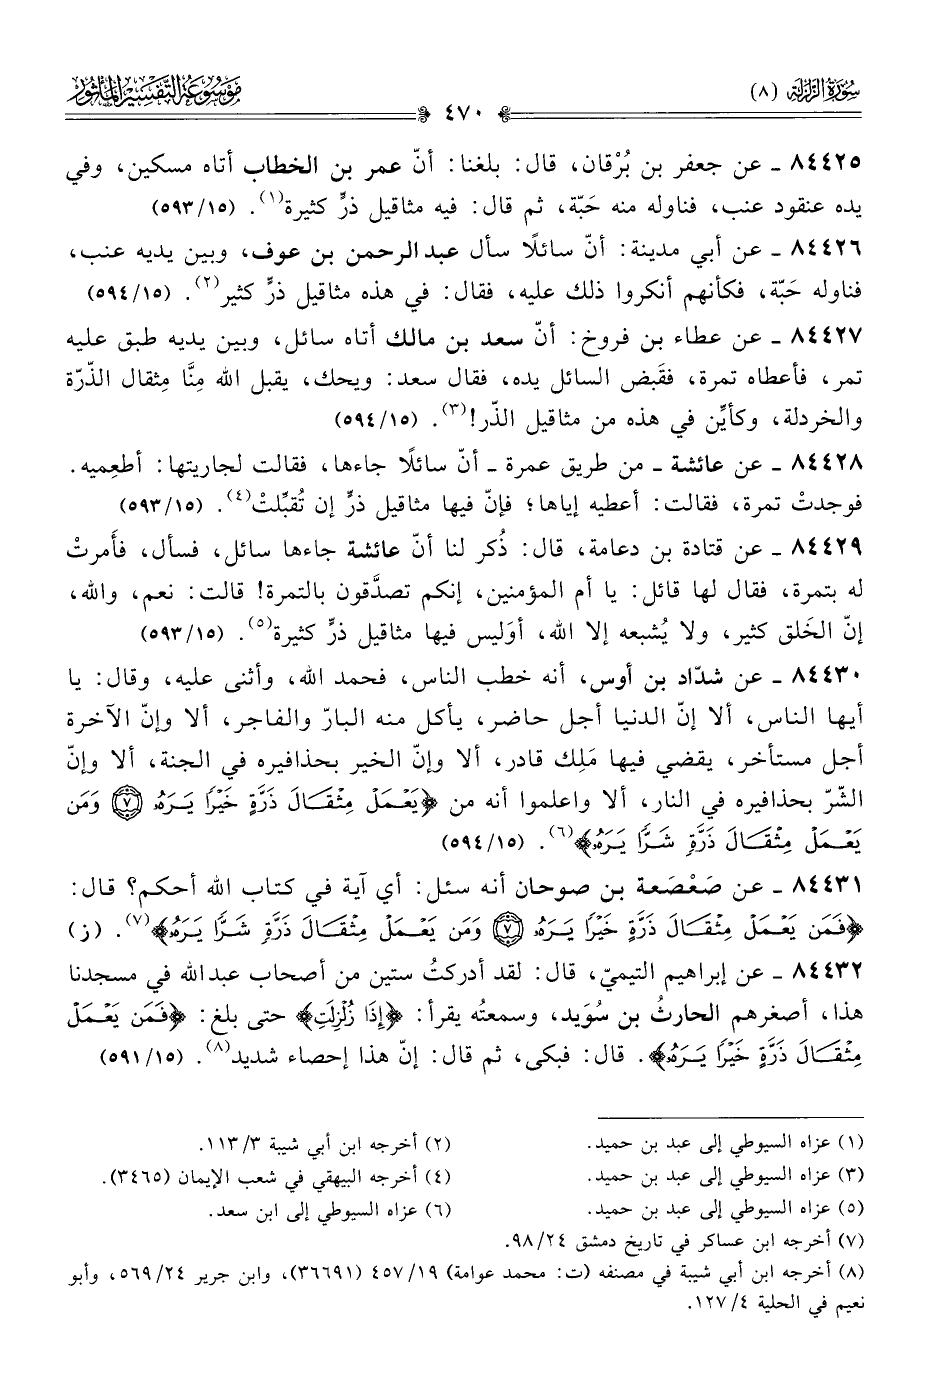 سورة الزلزلة (٨)
٤٧٠
موسوعة التفسير المأثور
٨٤٤٢٥ ـ عن جعفر بن بُرْقان، قال: بلغنا: أنّ عمر بن الخطاب أتاه مسكين، وفي
يده عنقود عنب، فناوله منه حَبّة، ثم قال: فيه مثاقيل ذرٍّ كثيرة(١). (١٥/٥٩٣)
٨٤٤٢٦ ـ عن أبي مدينة: أنّ سائلًا سأل عبدالرحمن بن عوف، وبين يديه عنب،
فناوله حَبّة، فكأنهم أنكروا ذلك عليه، فقال: في هذه مثاقيل ذرٍّ كثير(٢). (١٥/٥٩٤)
٨٤٤٢٧ ـ عن عطاء بن فروخ: أنّ سعد بن مالك أتاه سائل، وبين يديه طبق عليه
تمر، فأعطاه تمرة، فقَبض السائل يده، فقال سعد: ويحك، يقبل الله مِنَّا مِثقال الذّرّة
والخردلة، وكأيِّن في هذه من مثاقيل الذّر!(٣). (١٥/٥٩٤)
٨٤٤٢٨ ـ عن عائشة ـ من طريق عمرة ـ أنّ سائلًا جاءها، فقالت لجاريتها: أطعِميه.
فوجدتْ تمرة، فقالت: أعطيه إياها؛ فإنّ فيها مثاقيل ذرٍّ إن تُقبِّلتْ(٤). (١٥/٥٩٣)
٨٤٤٢٩ ـ عن قتادة بن دعامة، قال: ذُكر لنا أنّ عائشة جاءها سائل، فسأل، فأَمرتْ
له بتمرة، فقال لها قائل: يا أم المؤمنين، إنكم تصدَّقون بالتمرة! قالت: نعم، والله،
إنّ الخَلق كثير، ولا يُشبعه إلا الله، أوَليس فيها مثاقيل ذرٍّ كثيرة(٥). (١٥/٥٩٣)
٨٤٤٣٠ ـ عن شدّاد بن أوس، أنه خطب الناس، فحمد الله، وأثنى عليه، وقال: يا
أيها الناس، ألا إنّ الدنيا أجل حاضر، يأكل منه البارّ والفاجر، ألا وإنّ الآخرة
أجل مستأخر، يقضي فيها مَلِك قادر، ألا وإنّ الخير بحذافيره في الجنة، ألا وإنّ
الشّرّ بحذافيره في النار، ألا واعلموا أنه من ﴿يَعْمَلْ مِثْقَالَ ذَرَّةٍ خَيْرًا يَرَهُۥ ۝٧ وَمَن
يَعْمَلْ مِثْقَالَ ذَرَّةٍ شَرًّا يَرَهُۥ﴾(٦). (١٥/٥٩٤)
٨٤٤٣١ ـ عن صَعْصَعة بن صوحان أنه سئل: أي آية في كتاب الله أحكم؟ قال:
﴿فَمَن يَعْمَلْ مِثْقَالَ ذَرَّةٍ خَيْرًا يَرَهُۥ ۝٧ وَمَن يَعْمَلْ مِثْقَالَ ذَرَّةٍ شَرًّا يَرَهُۥ﴾(٧). (ز)
٨٤٤٣٢ ـ عن إبراهيم التيميّ، قال: لقد أدركتُ ستين من أصحاب عبدالله في مسجدنا
هذا، أصغرهم الحارثُ بن سُوَيد، وسمعتُه يقرأ: ﴿إِذَا زُلْزِلَتِ﴾ حتى بلغ: ﴿فَمَن يَعْمَلْ
مِثْقَالَ ذَرَّةٍ خَيْرًا يَرَهُۥ﴾. قال: فبكى، ثم قال: إنّ هذا إحصاء شديد(٨). (١٥/٥٩١)
(١) عزاه السيوطي إلى عبد بن حميد.
(٢) أخرجه ابن أبي شيبة ٣/١١٣.
(٣) عزاه السيوطي إلى عبد بن حميد.
(٤) أخرجه البيهقي في شعب الإيمان (٣٤٦٥).
(٥) عزاه السيوطي إلى عبد بن حميد.
(٦) عزاه السيوطي إلى ابن سعد.
(٧) أخرجه ابن عساكر في تاريخ دمشق ٢٤/٩٨.
(٨) أخرجه ابن أبي شيبة في مصنفه (ت: محمد عوامة) ١٩/٤٥٧ (٣٦٦٩١)، وابن جرير ٢٤/٥٦٩، وأبو
نعيم في الحلية ٤/١٢٧.